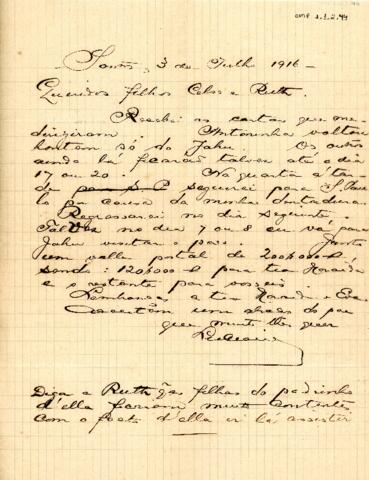 Santos, 3 de Julho 1916 -
Queridos filhos Celso e Ruth.
Recebi as cartas que me
dirigiram. Antoninha voltou
hontem só do Jahu. Os outros
ainda lá ficarão talvez até o dia
17 ou 20. Na quarta á tar-
de seguirei para S. Pau-
lo por causa da minha dentadura.
Regressarei no dia seguinte.
Talvez no dia 7 ou 8 eu vá para
Jahu visitar o pae. Junto
um valle postal de 200.000
sendo: 120.000 para tia
e o restante para vosseis.
Lembranças a tia e
Acceitem um abraço do pae
que muito lhes quer
Diga a Ruth q as filhas do padrinho
d'ella ficariam muito contentes
com o facto d'ella ir lá assistir